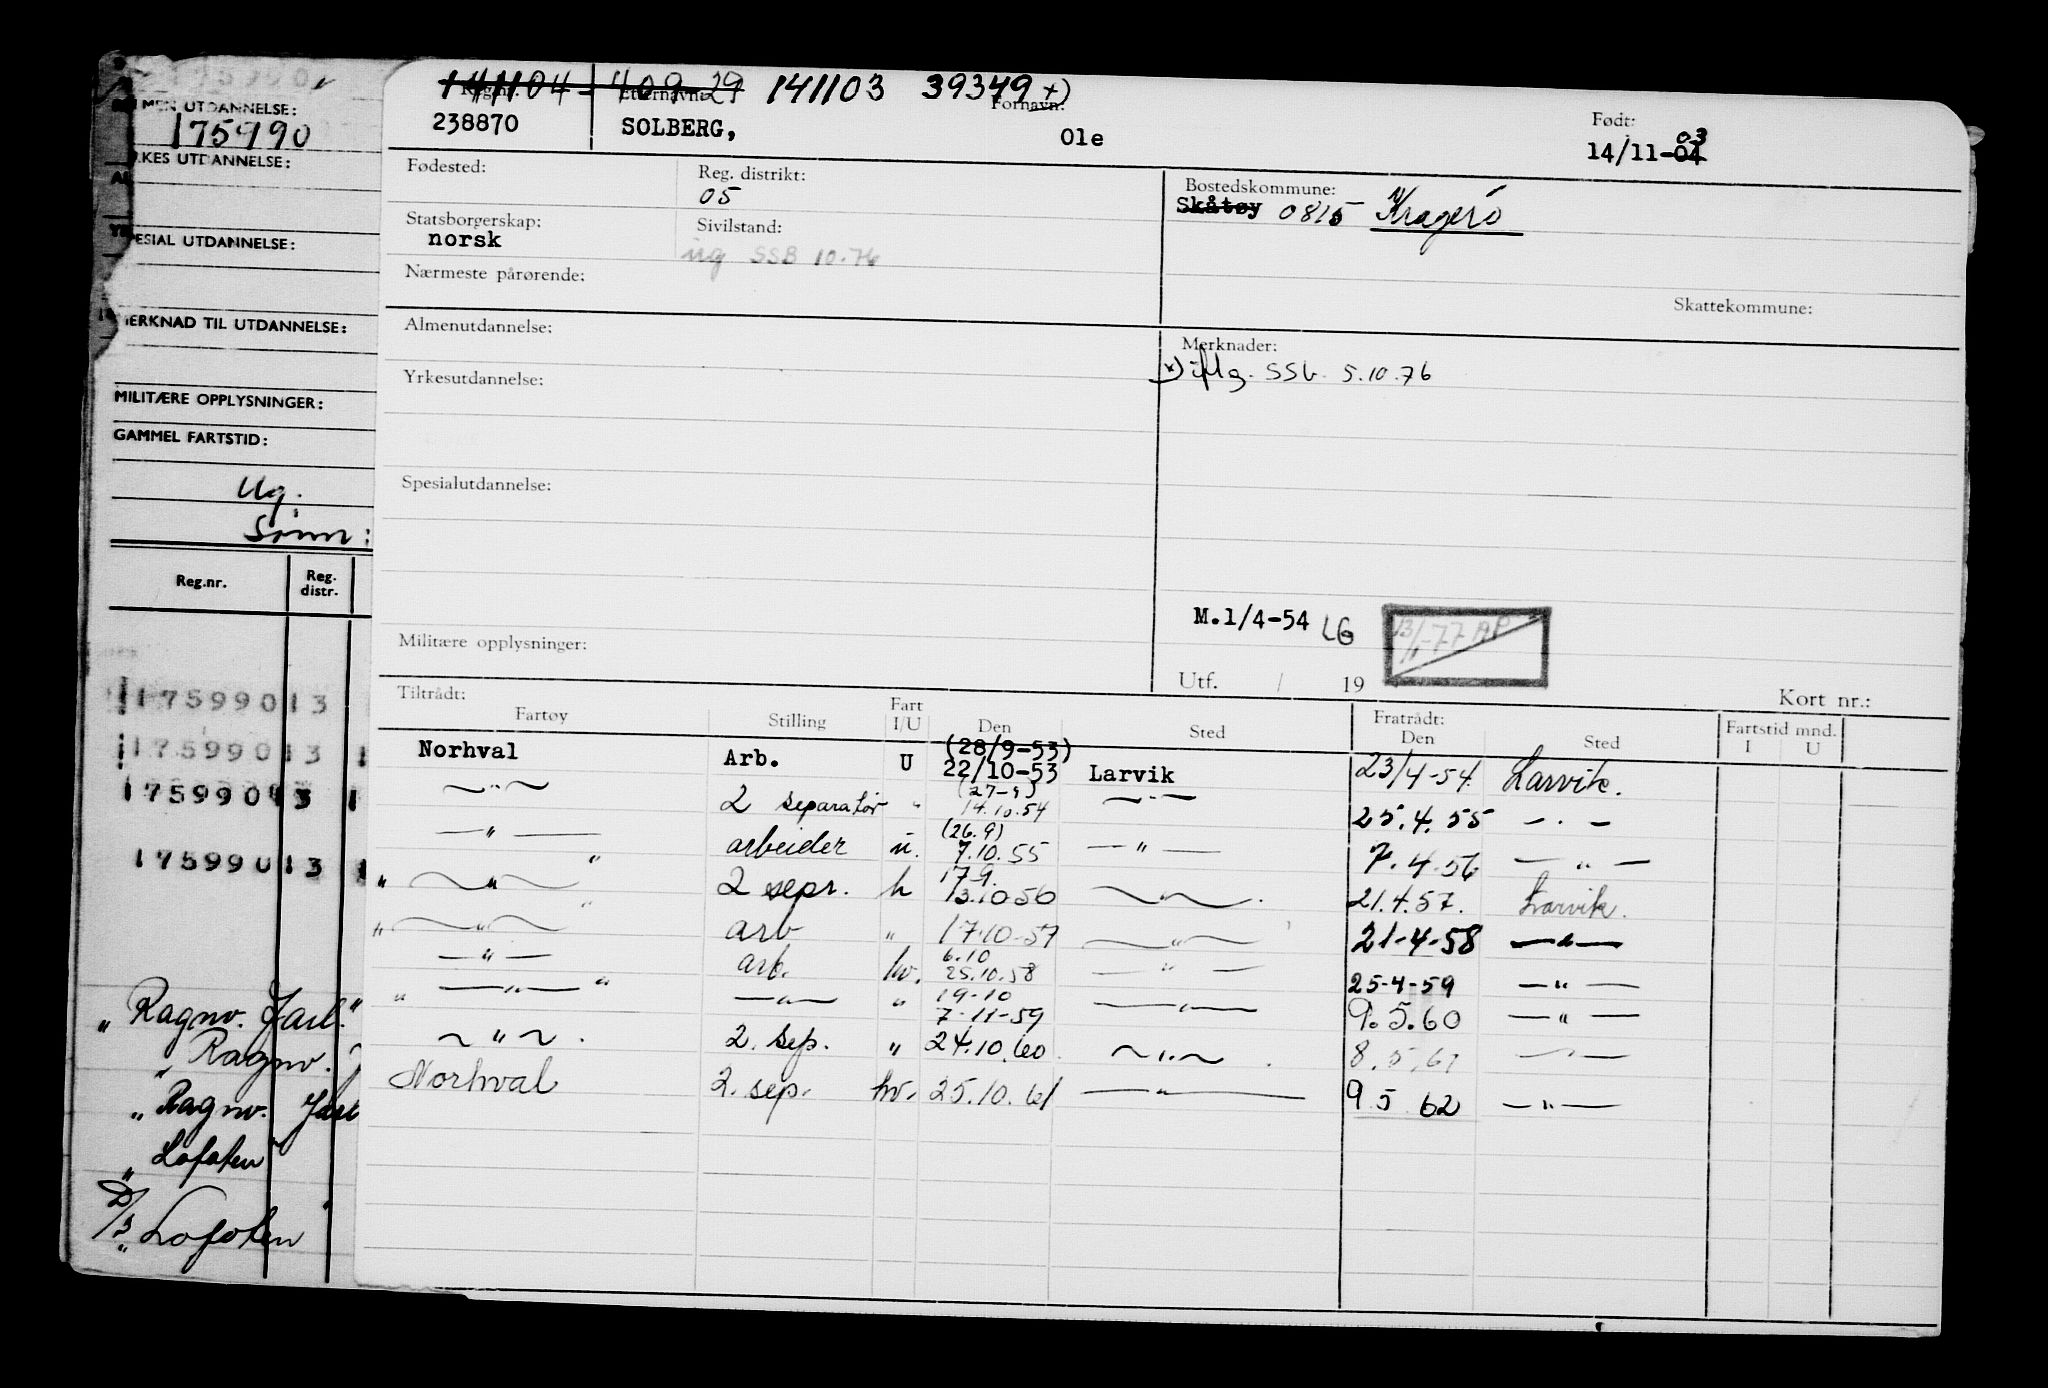 ALMEN UTDANNELSE:
175990
YRKES UTDANNELSE:
SPESIAL UTDANNELSE:
MERKNAD TIL UTDANNELSE:
MILITÆRE OPPLYSNINGER:
GAMMEL FARTSTID:
Ug.
Reg.nr. Reg. distr.
175990 13
175990 13 1
175990 13 1
175990 13 1
„ Ragnv. Jarl."
„ Ragnv. J
„ Ragnv. Jarl
„ Lofoten
D/S „ Lofoten
141104 - 409-29 141103 39349 +)
Reg.nr. Etternavn: Fornavn: Født:
238870 SOLBERG, Ole 14/11-04 03
Fødested: Reg. distrikt: 05
Bostedskommune:
Skåtøy 0815 Kragerö
Statsborgerskap: norsk
Sivilstand: ug SSB 10.76
Nærmeste pårørende:
Skattekommune:
Almenutdannelse:
Merknader:
x) iflg. SSb. 5.10.76
Yrkesutdannelse:
Spesialutdannelse:
M.1/4-54 LG
Militære opplysninger:
Utf. / 19
Kort nr.:
Tiltrådt: Fratrådt: Fartstid mnd.
Fartøy Stilling Fart I/U Den Sted Den Sted I U
Norhval Arb. U (28/9-53) 22/10-53 Larvik 23/4-54. Larvik.
—"— 2 separatør " (27-9) 14.10.54 —"— 25.4.55 —"—
—"— arbeider u. (26.9) 7.10.55 —"— 7.4.56 —"—
" —"— " 2 sepr. h 17.9. 13.10.56 —"— 21.4.57. Larvik.
" —"— " arb " 17.10-57 —"— 21-4-58 —"—
—"— arb. hv. 6.10 25.10.58 —"— 25-4-59 —"—
" —"— " —"— " 19-10 7-11-59 —"— 9.5.60 —"—
—"— 2. sep. " 24.10.60. —"— 8.5.61 —"—
Norhval 2. sep. hv. 25.10.61 —"— 9.5.62 —"—